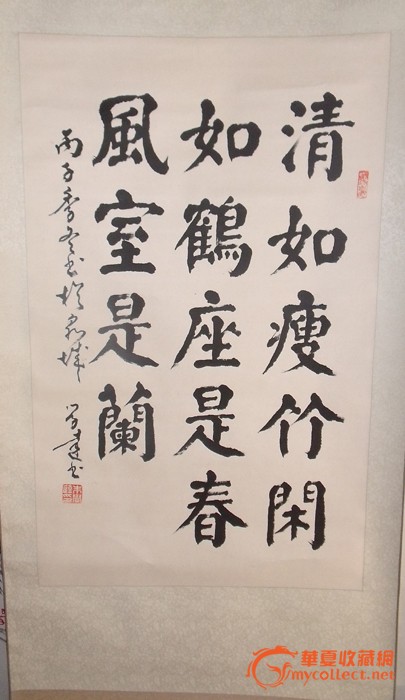 清如瘦竹閑
如鶴座是春
風室是蘭
丙子季冬书於泉城
華夏收藏網
mycollect.net